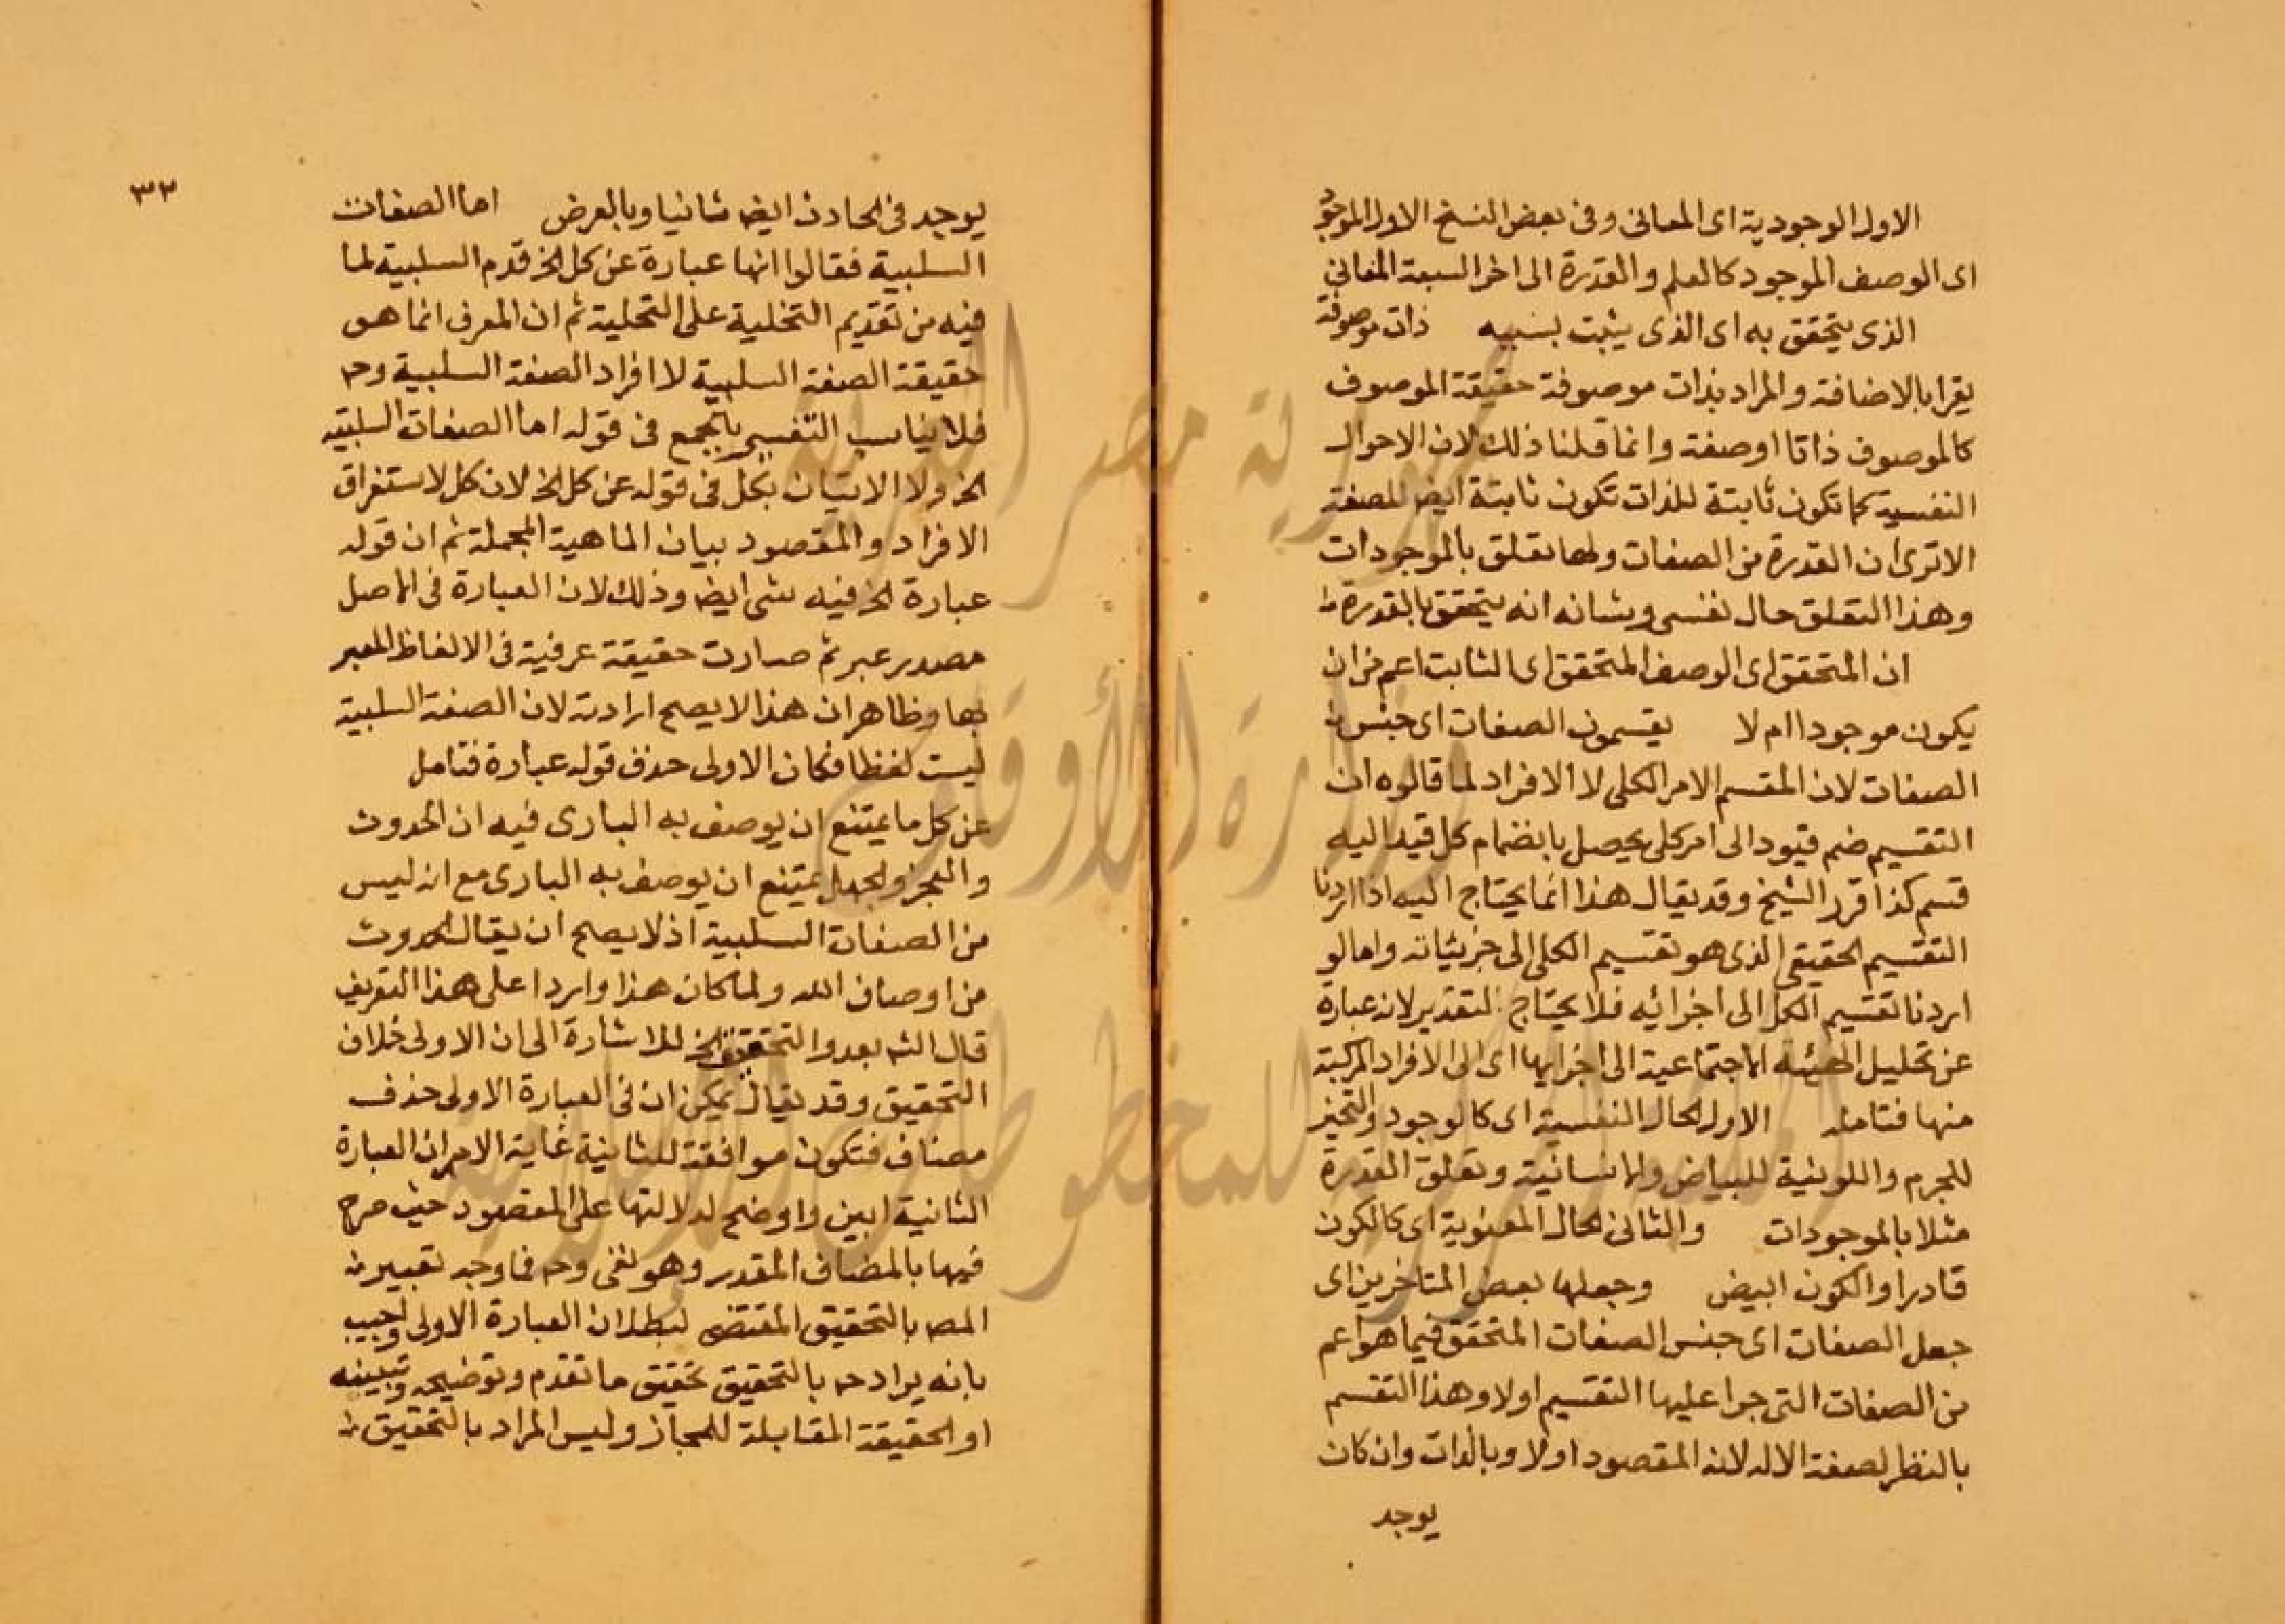 الاول الوجودية اى المعانى وفى بعض النسخ الاول الموجود
اى الوصف الموجود كالعلم والقدرة الى اخر السبعة المعانى
الذى يتحقق به اى الذى يثبت بسببه ذات موصوفة
يقرا بالاضافة والمراد بذات موصوفة حقيقة الموصوف
كالموصوف ذاتا اوصفة وانما قلنا ذلك لان الاحوال
النفسية كما تكون ثابتة للذات تكون ثابتة ايض للصفة
الاترى ان القدرة من الصفات ولها تعلق بالموجودات
وهذا التعلق حال نفسى وشانه انه يتحقق بالقدرة
ان المتحقق اى الوصف المتحقق اى الثابت اعم من ان
يكون موجودا ام لا يقسمون الصفات اى جنس
الصفات لان المقسم الامر الكلى لا الافراد لما قالوه ان
التقسيم ضم قيود الى امر كلى يحصل بانضمام كل قيد اليه
قسم كذا قرر الشيخ وقد يقال هذا انما يحتاج اليه اذا اردنا
التقسيم الحقيقى الذى هو تقسيم الكلى الى جزيئاته واما لو
اردنا تقسيم الكل الى اجزائه فلا يحتاج لتقدير لانه عبارة
عن تحليل الهيئة الاجتماعية الى اجزايها اى الى الافراد المركبة
منها فتامله الاول الحال النفسية اى كالوجود والتحيز
للجرم واللونية للبياض والانسانية وتعلق القدرة
مثلا بالموجودات والثانى الحال المعنوية اى كالكون
قادرا والكون ابيض وجعلها بعض المتاخرين اى
جعل الصفات اى جنس الصفات المتحقق فيما هو اعم
من الصفات التى جرا عليها التقسيم اولا وهذا التقسم
بالنظر لصفة الاله لانه المقصود اولا وبالذات وان كان
يوجد
٣٢
يوجد فى الحادث ايض ثانيا وبالعرض اما الصفات
السلبية فقالوا انها عبارة عن كل الخ قدم السلبية لما
فيه من تقديم التخلية على التحلية ثم ان المعرف انما هو
حقيقة الصفة السلبية لا افراد الصفة السلبية وح
فلا يناسب التفسير بالجمع فى قوله اما الصفات السلبية
الخ ولا الاتيان بكل فى قوله عن كل الخ لان كل لاستغراق
الافراد والمقصود بيان الماهية المجملة ثم ان قوله
عبارة الخ فيه شى ايض وذلك لان العبارة فى الاصل
مصدر عبر ثم صارت حقيقة عرفية فى الالفاظ المعبر
بها وظاهر ان هذا لا يصح ارادته لان الصفة السلبية
ليست لفظا فكان الاولى حذف قوله عبارة فتامل
عن كل ما يمتنع ان يوصف به البارى فيه ان الحدوث
والعجز والجهل يمتنع ان يوصف به البارى مع انه ليس
من الصفات السلبية اذ لا يصح ان يقال الحدوث
من اوصاف الله ولما كان هذا واردا على هذا التعريف
قال الش بعد والتحقيق الخ للاشارة الى ان الاولى خلاف
التحقيق وقد يقال يمكن ان فى العبارة الاولى حذف
مضاف فتكون موافقة للثانية غاية الامر ان العبارة
الثانية ابين واوضح لدلالتها على المقصود حيث صرح
فيها بالمضاف المقدر وهو نفى وح فما وجه تعبير
المص بالتحقيق المقتضى لبطلان العبارة الاولى واجيب
بانه يراد ح بالتحقيق تحقيق ما تقدم وتوضيحه وتبيينه
او الحقيقة المقابلة للمجاز وليس المراد بالتحقيق